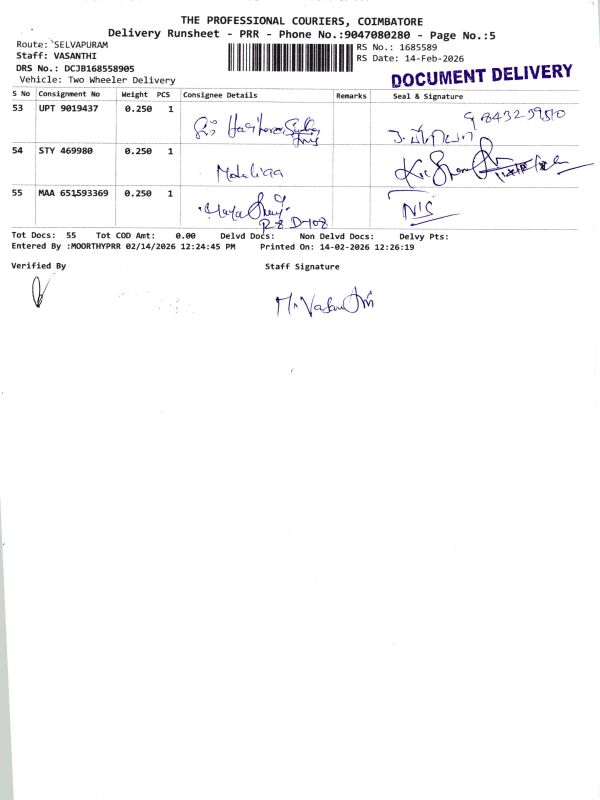 THE PROFESSIONAL COURIERS, COIMBATORE
Delivery Runsheet - PRR - Phone No.:9047080280 - Page No.:5
Route: SELVAPURAM
RS No.: 1685589
Staff: VASANTHI
RS Date: 14-Feb-2026
DRS No.: DCJB168558905
DOCUMENT DELIVERY
Vehicle: Two Wheeler Delivery
S No Consignment No Weight PCS Consignee Details Remarks Seal & Signature
53 UPT 9019437 0.250 1
54 STY 469980 0.250 1
55 MAA 651593369 0.250 1
N/S
Tot Docs: 55 Tot COD Amt: 0.00 Delvd Docs: Non Delvd Docs: Delvy Pts:
Entered By :MOORTHYPRR 02/14/2026 12:24:45 PM Printed On: 14-02-2026 12:26:19
Verified By Staff Signature